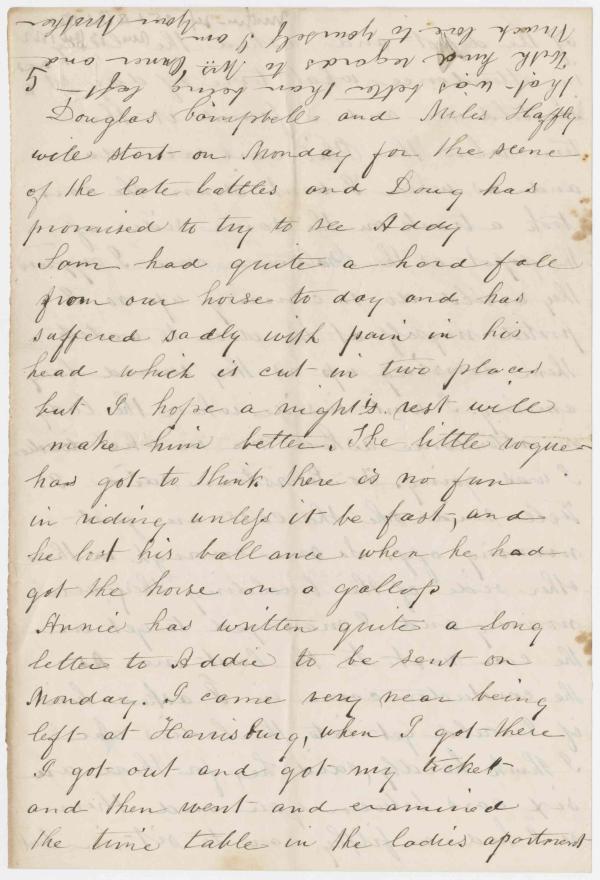 5
Douglas Campbell and Miles Haffly
will start on Monday for the scene
of the late battles and Doug has
promised to try to see Addy
Sam had quite a hard fall
from our horse to day and has
suffered sadly with pain in his
head which is cut in two places
but I hope a night's rest will
make him better. The little rogue
has got to think there is no fun
in riding unless it be fast, and
he lost his ballance when he had
got the horse on a gallop
Annie has written quite a long
letter to Addie to be sent on
Monday. I came very near being
left at Harrisburg, when I got there
I got out and got my ticket
and then went and examined
the time table in the ladies apartment
that was better than being left—
With kind regards to Mrs. and
much love to yourself I am
your Mother